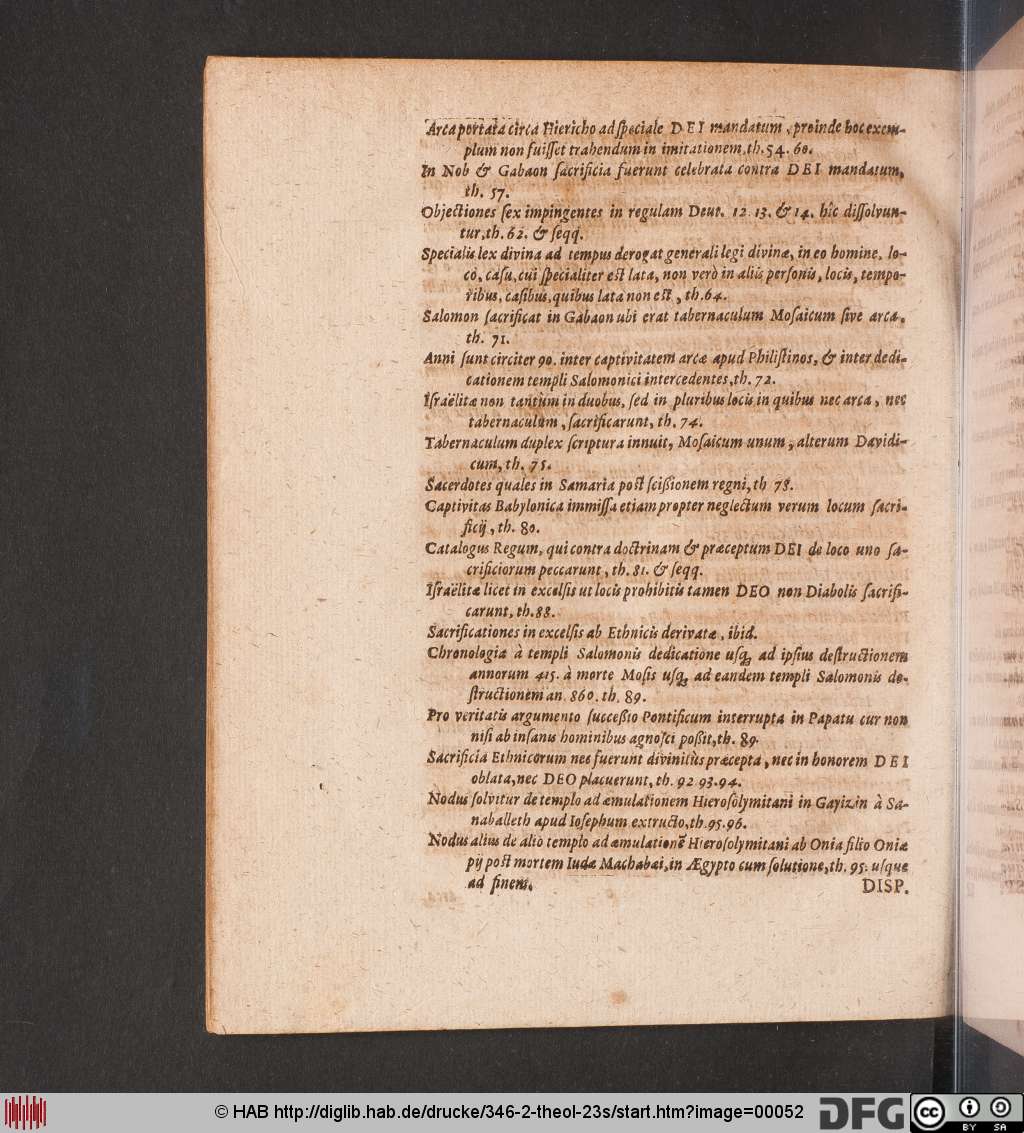 Arca portata circa Hiericho ad ſpeciale DEI mandatum, proinde hoc exem-
plum non fuiſſet trahendum in imitationem, th. 54. 60.
In Nob & Gabaon ſacrificia fuerunt celebrata contra DEI mandatum,
th. 57.
Objectiones ſex impingentes in regulam Deut. 12. 13. & 14. hîc diſſolvun-
tur, th. 62. & ſeqq.
Specialis lex divina ad tempus derogat generali legi divinæ, in eo homine, lo-
co, caſu, cui ſpecialiter eſt lata, non verò in aliis perſonis, locis, tempo-
ribus, caſibus, quibus lata non eſt, th. 64.
Salomon ſacrificat in Gabaon ubi erat tabernaculum Moſaicum ſive arca,
th. 71.
Anni ſunt circiter 90. inter captivitatem arcæ apud Philiſtinos, & inter dedi-
cationem templi Salomonici intercedentes, th. 72.
Iſraëlitæ non tantùm in duobus, ſed in pluribus locis in quibus nec arca, nec
tabernaculum, ſacrificarunt, th. 74.
Tabernaculum duplex ſcriptura innuit, Moſaicum unum, alterum Davidi-
cum, th. 75.
Sacerdotes quales in Samaria poſt ſciſsionem regni, th 78.
Captivitas Babylonica immiſſa etiam propter neglectum verum locum ſacri-
ficij, th. 80.
Catalogus Regum, qui contra doctrinam & præceptum DEI de loco uno ſa-
crificiorum peccarunt, th. 81. & ſeqq.
Iſraëlitæ licet in excelſis ut locis prohibitis tamen DEO non Diabolis ſacrifi-
carunt, th. 88.
Sacrificationes in excelſis ab Ethnicis derivatæ, ibid.
Chronologia à templi Salomonis dedicatione uſq; ad ipſius deſtructionem
annorum 415. à morte Moſis uſq; ad eandem templi Salomonis de-
ſtructionem an. 860. th. 89.
Pro veritatis argumento ſucceſsio Pontificum interrupta in Papatu cur non
niſi ab inſanis hominibus agnoſci poſsit, th. 89.
Sacrificia Ethnicorum nec fuerunt divinitùs præcepta, nec in honorem DEI
oblata, nec DEO placuerunt, th. 92. 93. 94.
Nodus ſolvitur de templo ad æmulationem Hieroſolymitani in Garizin à Sa-
naballeth apud Ioſephum extructo, th. 95. 96.
Nodus alius de alio templo ad æmulationē Hieroſolymitani ab Onia filio Oniæ
pij poſt mortem Iudæ Machabæi, in Ægypto cum ſolutione, th. 95. uſque
ad finem.
DISP.
© HAB http://diglib.hab.de/drucke/346-2-theol-23s/start.htm?image=00052
DFG
cc BY SA